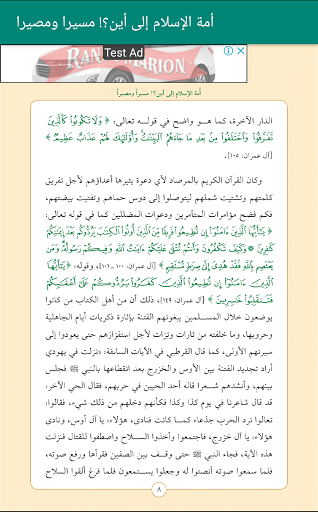 أمة الإسلام إلى أين؟! مسيرا ومصيرا
RAND MARION
Test Ad
أمة الإسلام إلى أين؟! مسيراً ومصيراً
الدار الآخرة، كما هو واضح في قوله تعالى: ﴿ وَلَا تَكُونُوا كَالَّذِينَ
تَفَرَّقُوا وَاخْتَلَفُوا مِنْ بَعْدِ مَا جَاءَهُمُ الْبَيِّنَاتُ وَأُولَئِكَ لَهُمْ عَذَابٌ عَظِيمٌ ﴾
[آل عمران: ١٠٥].
وكان القرآن الكريم بالمرصاد لأي دعوة يثيرها أعداؤهم لأجل تفريق
كلمتهم وتشتيت شملهم ليتوصلوا إلى دوس حماهم وتفتيت بيضتهم،
فكم فضح مؤامرات المتآمرين ودعوات المضللين كما في قوله تعالى:
﴿ يَا أَيُّهَا الَّذِينَ آمَنُوا إِنْ تُطِيعُوا فَرِيقًا مِنَ الَّذِينَ أُوتُوا الْكِتَابَ يَرُدُّوكُمْ بَعْدَ إِيمَانِكُمْ
كَافِرِينَ ۝ وَكَيْفَ تَكْفُرُونَ وَأَنْتُمْ تُتْلَى عَلَيْكُمْ آيَاتُ اللَّهِ وَفِيكُمْ رَسُولُهُ وَمَنْ
يَعْتَصِمْ بِاللَّهِ فَقَدْ هُدِيَ إِلَى صِرَاطٍ مُسْتَقِيمٍ ﴾ [آل عمران: ١٠٠ - ١٠١]، وقوله: ﴿ يَا أَيُّهَا
الَّذِينَ آمَنُوا إِنْ تُطِيعُوا الَّذِينَ كَفَرُوا يَرُدُّوكُمْ عَلَى أَعْقَابِكُمْ
فَتَنْقَلِبُوا خَاسِرِينَ ﴾ [آل عمران: ١٤٩]، ذلك أن من أهل الكتاب من كانوا
يوضعون خلال المسلمين يبغونهم الفتنة بإثارة ذكريات أيام الجاهلية
وحروبها، وما خلفته من ثارات وترات لأجل استفزازهم حتى يعودوا إلى
سيرتهم الأولى، كما قال القرطبي في الآيات السابقة: «نزلت في يهودي
أراد تجديد الفتنة بين الأوس والخزرج بعد انقطاعها بالنبي ﷺ فجلس
بينهم، وأنشدهم شعرا قاله أحد الحيين في حربهم، فقال الحي الآخر:
قد قال شاعرنا في يوم كذا وكذا فكأنهم دخلهم من ذلك شيء، فقالوا:
تعالوا نرد الحرب جذعاء كما كانت فنادى، هؤلاء: يا آل أوس، ونادى
هؤلاء: يا آل خزرج، فاجتمعوا وأخذوا السلاح واصطفوا للقتال فنزلت
هذه الآية، فجاء النبي ﷺ حتى وقف بين الصفين فقرأها ورفع صوته،
فلما سمعوا صوته أنصتوا له وجعلوا يستمعون فلما فرغ ألقوا السلاح
٨